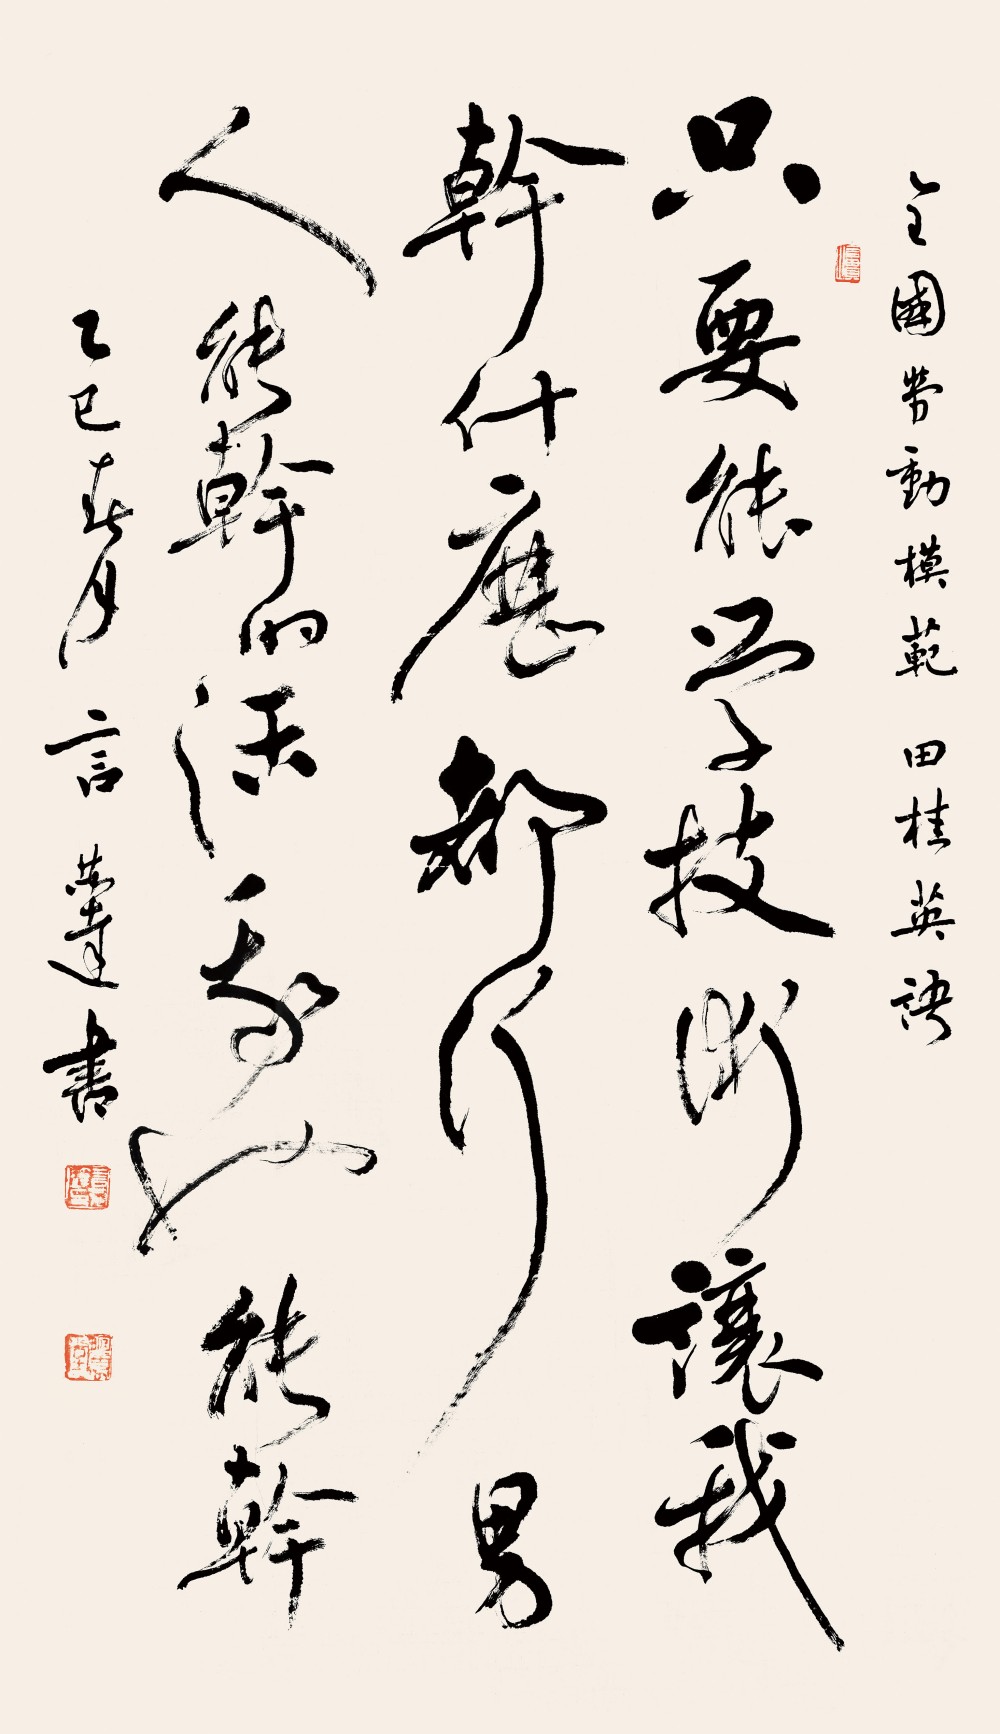 全國勞動模範 田桂英語
只要能学技術讓我
幹什麽都行男
人能幹的活我也能幹
乙巳春月 言 書